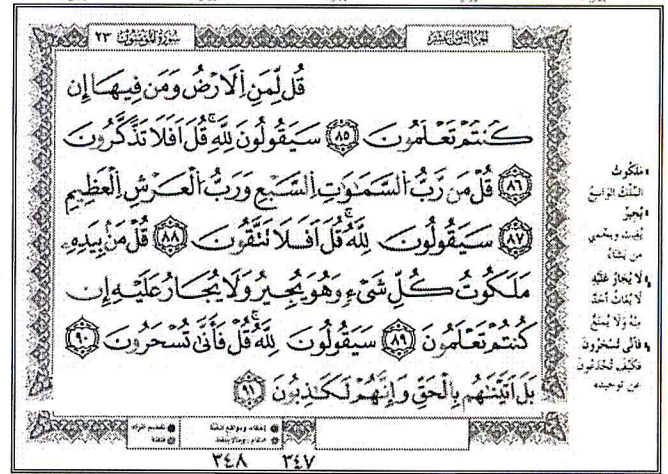 سُورَةُ المُؤْمِنُونَ ٢٣
الجزء الثامن عشر
قُل لِّمَنِ اِ۬لَارْضُ وَمَن فِيهَا إِن
كُنتُمْ تَعْلَمُونَ ٨٥ سَيَقُولُونَ لِلَّهِ قُلَ اَفَلَا تَذَّكَّرُونَ
٨٦ قُلْ مَن رَّبُّ السَّمَٰوَٰتِ السَّبْعِ وَرَبُّ الْعَرْشِ الْعَظِيمِ
٨٧ سَيَقُولُونَ لِلَّهِ قُلَ اَفَلَا تَتَّقُونَ ٨٨ قُلْ مَنۢ بِيَدِهِۦ
مَلَكُوتُ كُلِّ شَيْءٍ وَهُوَ يُجِيرُ وَلَا يُجَارُ عَلَيْهِ إِن
كُنتُمْ تَعْلَمُونَ ٨٩ سَيَقُولُونَ لِلَّهِ قُلْ فَأَنَّىٰ تُسْحَرُونَ ٩٠
بَلَ اَتَيْنَٰهُم بِالْحَقِّ وَإِنَّهُمْ لَكَٰذِبُونَ ٩١
مَلَكُوتُ
المُلْكُ الوَاسِعُ
يُجِيرُ
يُغِيثُ ويَحْمِي
من يَشَاءُ
لَا يُجَارُ عَلَيْهِ
لَا يُغَاثُ أَحَدٌ
مِنْهُ وَلَا يُمْنَعُ
فَأَنَّى تُسْحَرُونَ
فَكَيْفَ تُخْدَعُونَ
عن توحيده
إخفاء ومواقع الغنة
تفخيم الراء
قلقلة
٣٤٨ ٣٤٧